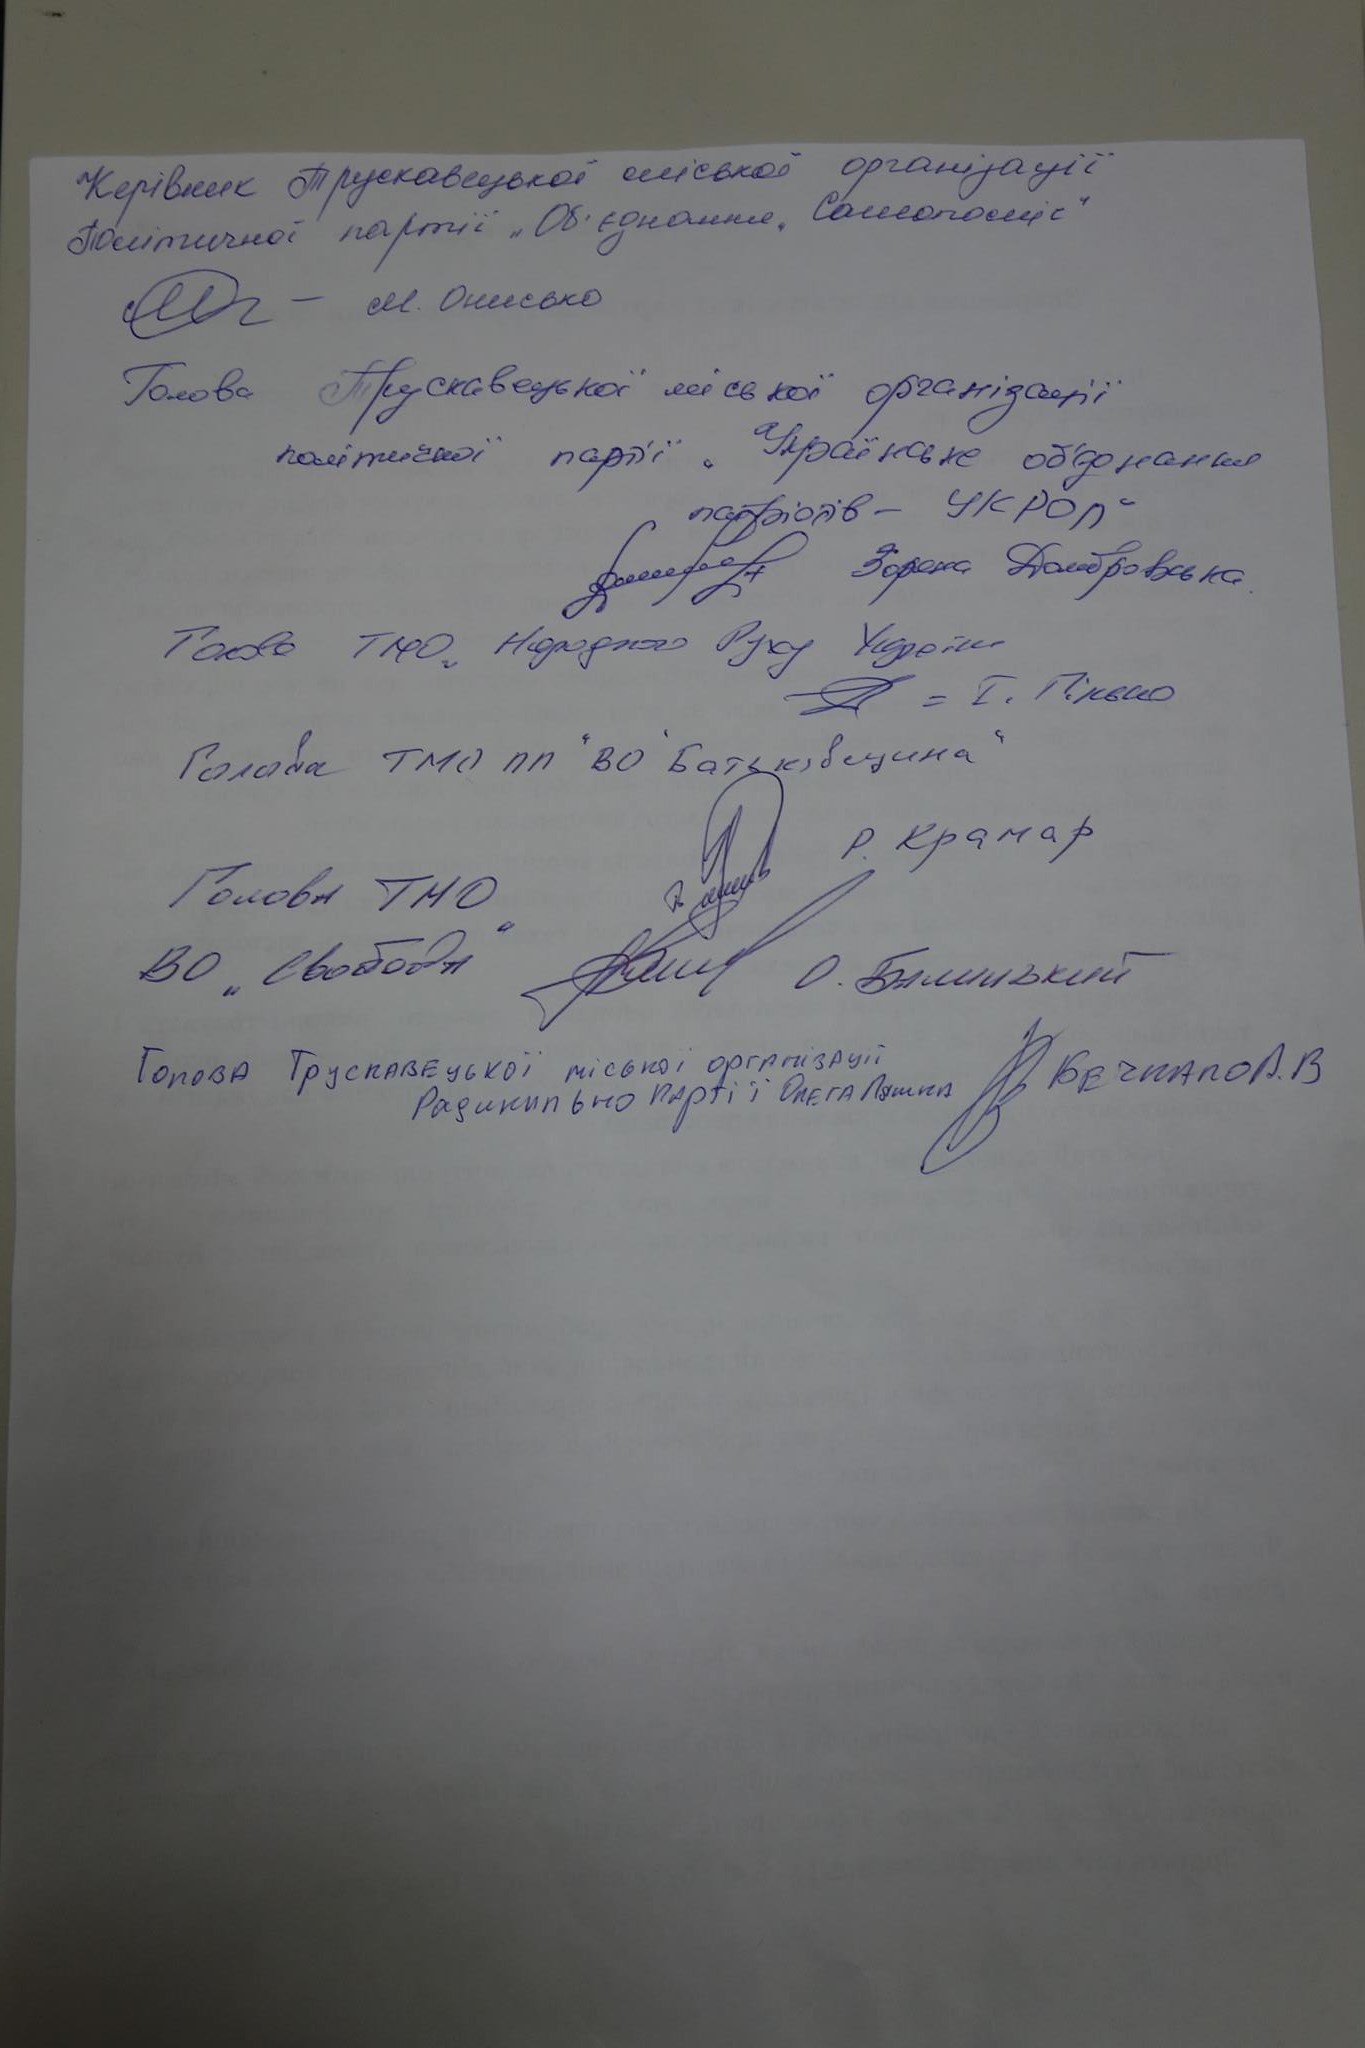 Керівник Трускавецької міської організації
Політичної партії „Об'єднання „Самопоміч"
— М. Онисько
Голова Трускавецької міської організації
політичної партії „Українське об'єднання
патріотів – УКРОП"
Зоряна Домбровська.
Голова ТМО „Народного Руху України
= І. Пілько
Голова ТМО ПП "ВО "Батьківщина"
Р. Крамар
Голова ТМО
ВО „Свобода"
О. Балицький
Голова Трускавецької міської організації
Радикально партії Олега Ляшка